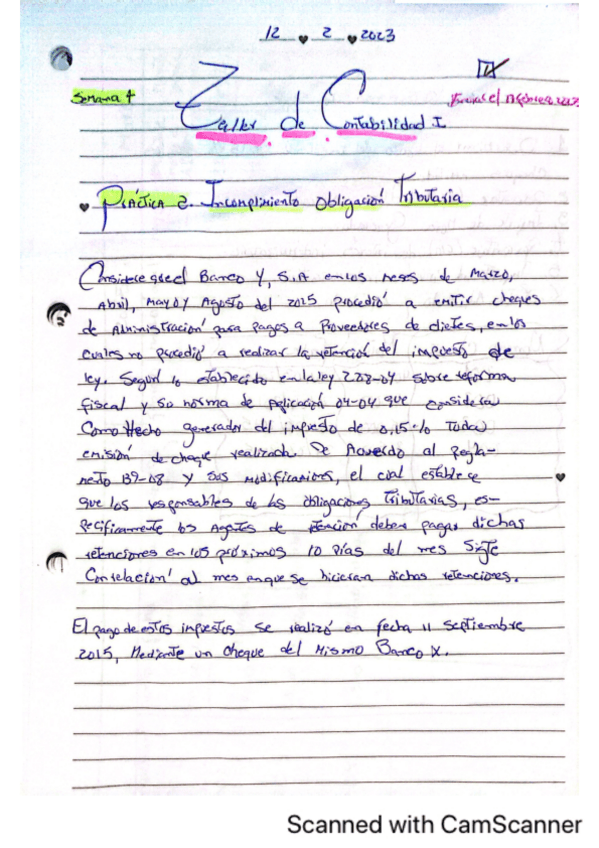 12 2 2023
Semana 4
Taller de Contabilidad I
PRÁCTICA 2. Incomplimiento Obligación Tributaria
Considere que el Banco Y, S.A en los meses de Marzo,
Abril, Mayo y Agosto del 2015 procedió a emitir cheques
de Administración para pagos a Proveedores de clietes, en los
cuales no procedió a realizar la retención del impuesto de
ley. Según lo establecido en la ley 288-04 sobre reforma
fiscal y su norma de Aplicación 04-04 que considera
Como Hecho generador del impuesto de 0,15% Toda
emisión de cheque realizada. De Acuerdo al Regla-
neto 139-98 y sus modificaciones, el cual establece
que los responsables de las obligaciones Tributarias, es-
pecificamente los Agetes de retención deben pagar dichas
retenciones en los próximos 10 Días del mes
Con relación al mes en que se hicieran dichas retenciones.
El pago de estos impuestos se realizó en fecha 11 septiembre
2015, Mediante un cheque del Mismo Banco X.
Scanned with CamScanner